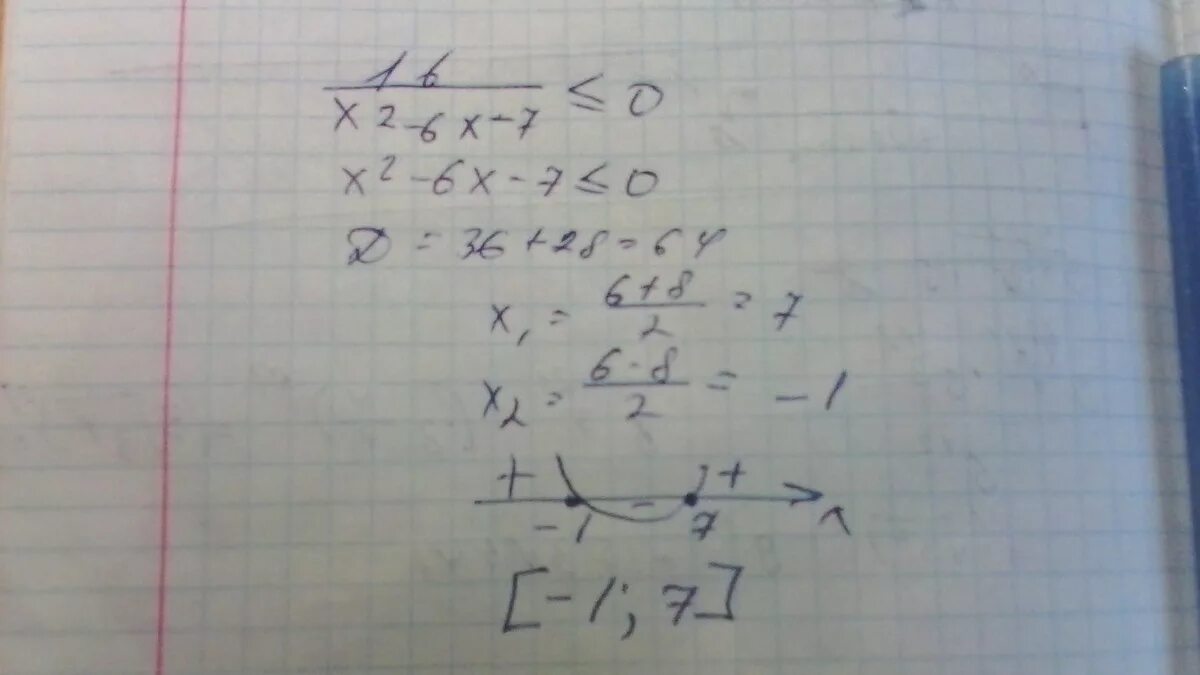 16/(x²-6x-7) ≤ 0
x²-6x-7 ≤ 0
D = 36+28=64
x₁ = (6+8)/2 = 7
x₂ = (6-8)/2 = -1
+ - +
-1 7
[-1; 7]